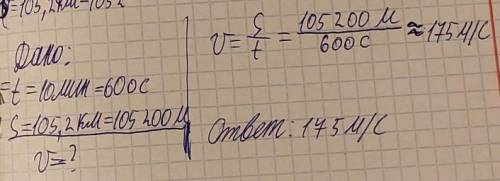 S=105,2км=1052
Дано:
t=10мин=600с
S=105,2км=105200м
V=?
V=S/t=105200м/600с≈175м/с
Ответ: 175м/с